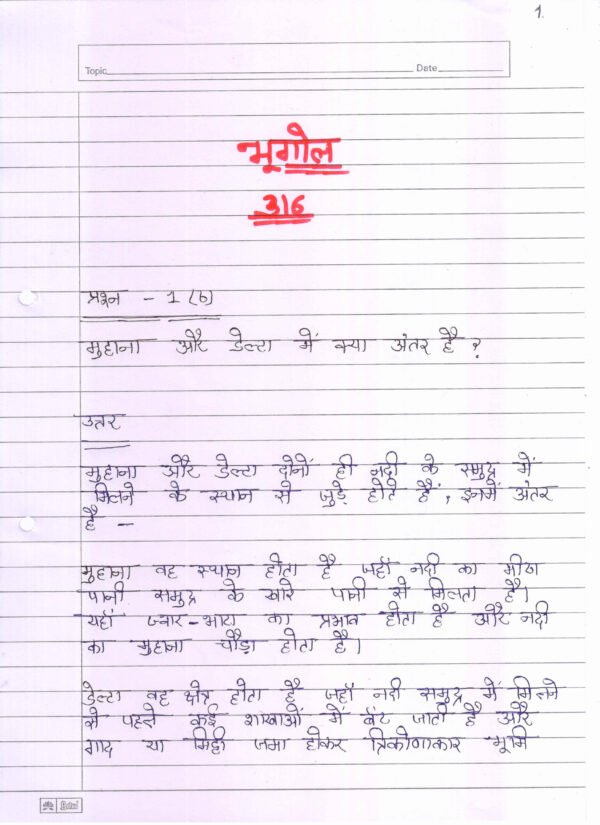 1.
Topic Date
भूगोल
316
प्रश्न - 1 (b)
मुहाना और डेल्टा में क्या अंतर है ?
उत्तर
मुहाना और डेल्टा दोनों ही नदी के समुद्र में
मिलने के स्थान से जुड़े होते हैं, इनमें अंतर
है -
मुहाना वह स्थान होता है जहाँ नदी का मीठा
पानी समुद्र के खारे पानी से मिलता है।
यहाँ ज्वार-भाटा का प्रभाव होता है और नदी
का मुहाना चौड़ा होता है।
डेल्टा वह क्षेत्र होता है जहाँ नदी समुद्र में मिलने
से पहले कई शाखाओं में बँट जाती है और
गाद या मिट्टी जमा होकर त्रिकोणाकार भूमि